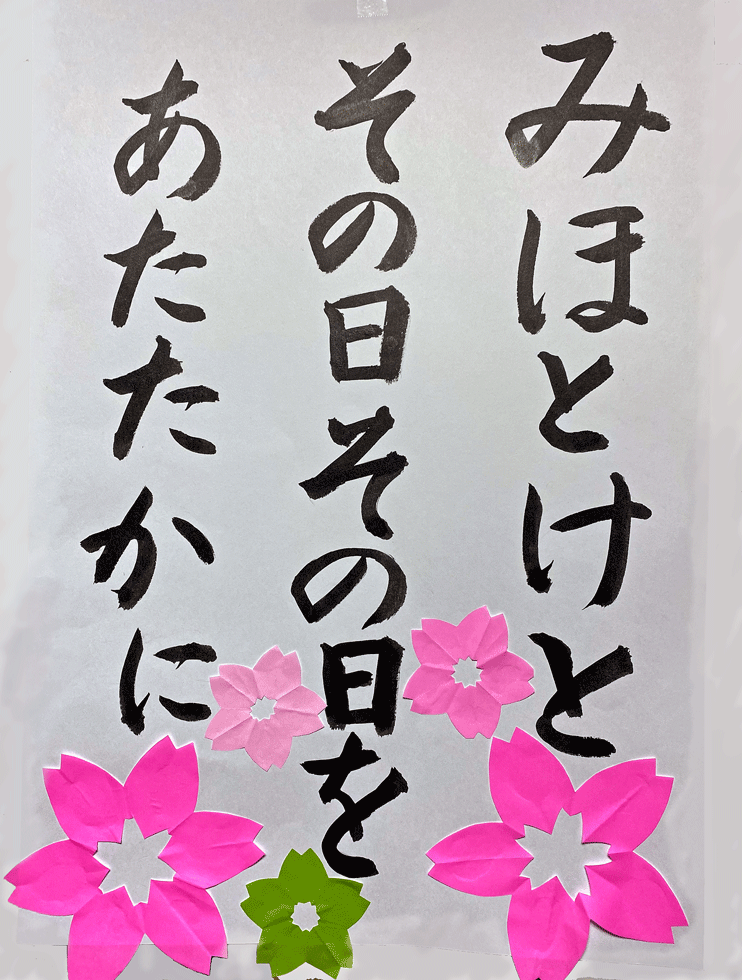 みほとけと
その日その日を
あたたかに